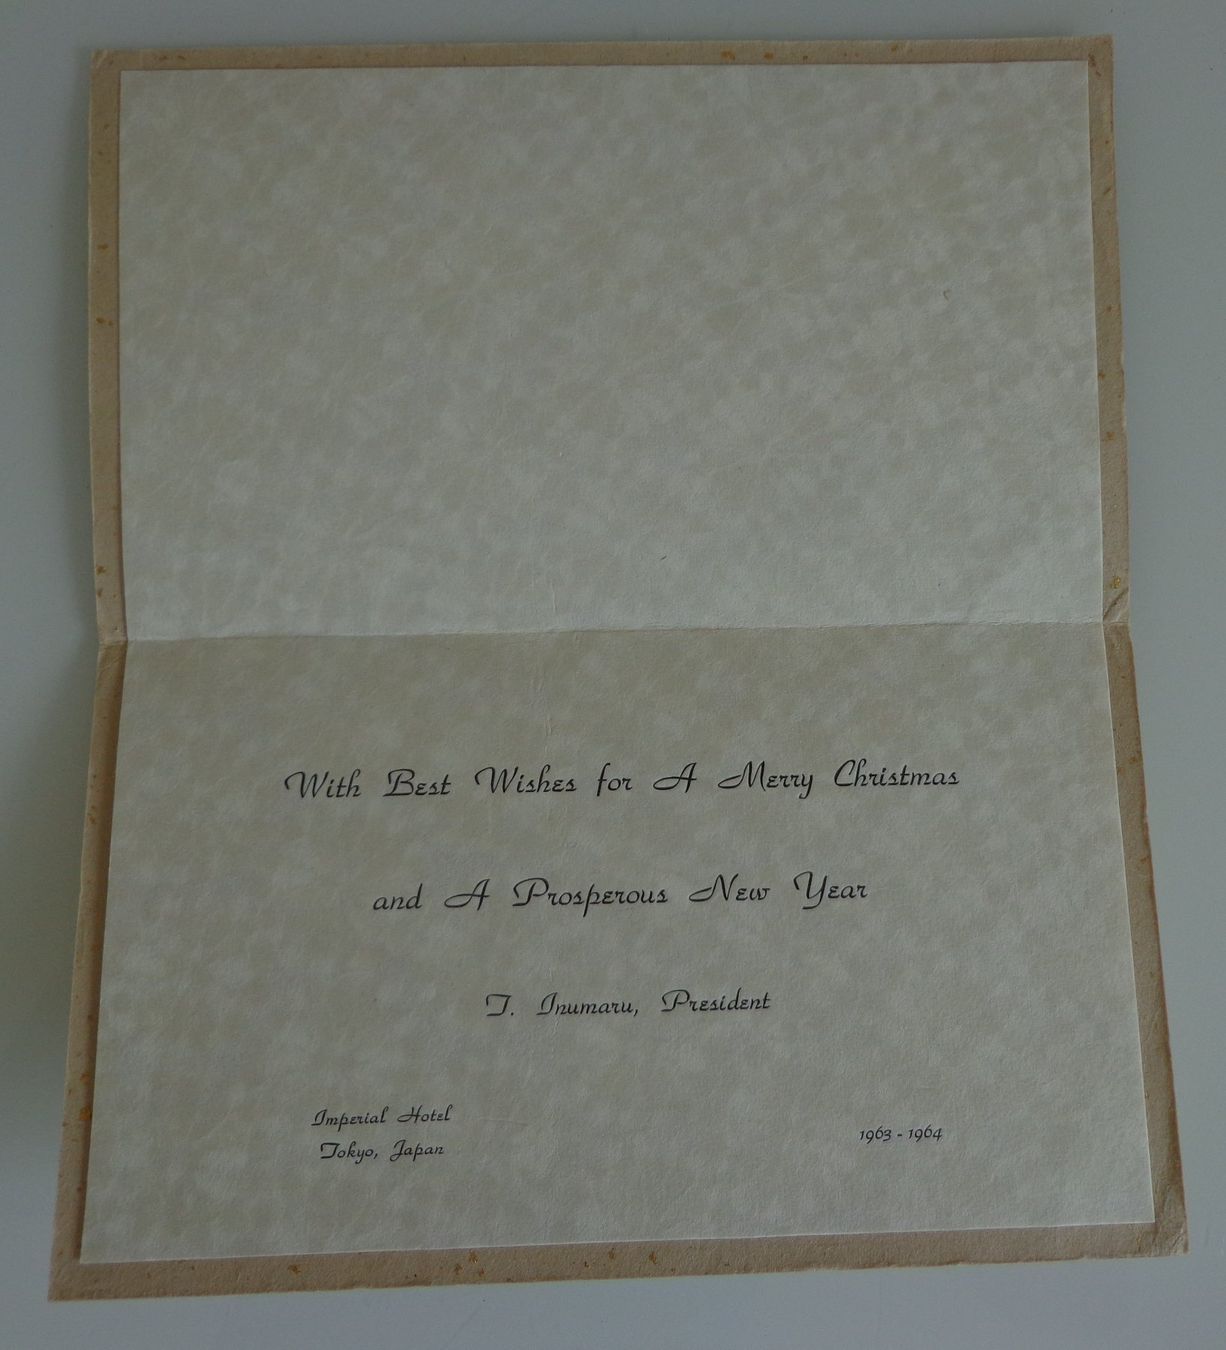 With Best Wishes for A Merry Christmas
and A Prosperous New Year
T. Inumaru, President
Imperial Hotel
Tokyo, Japan
1963 - 1964